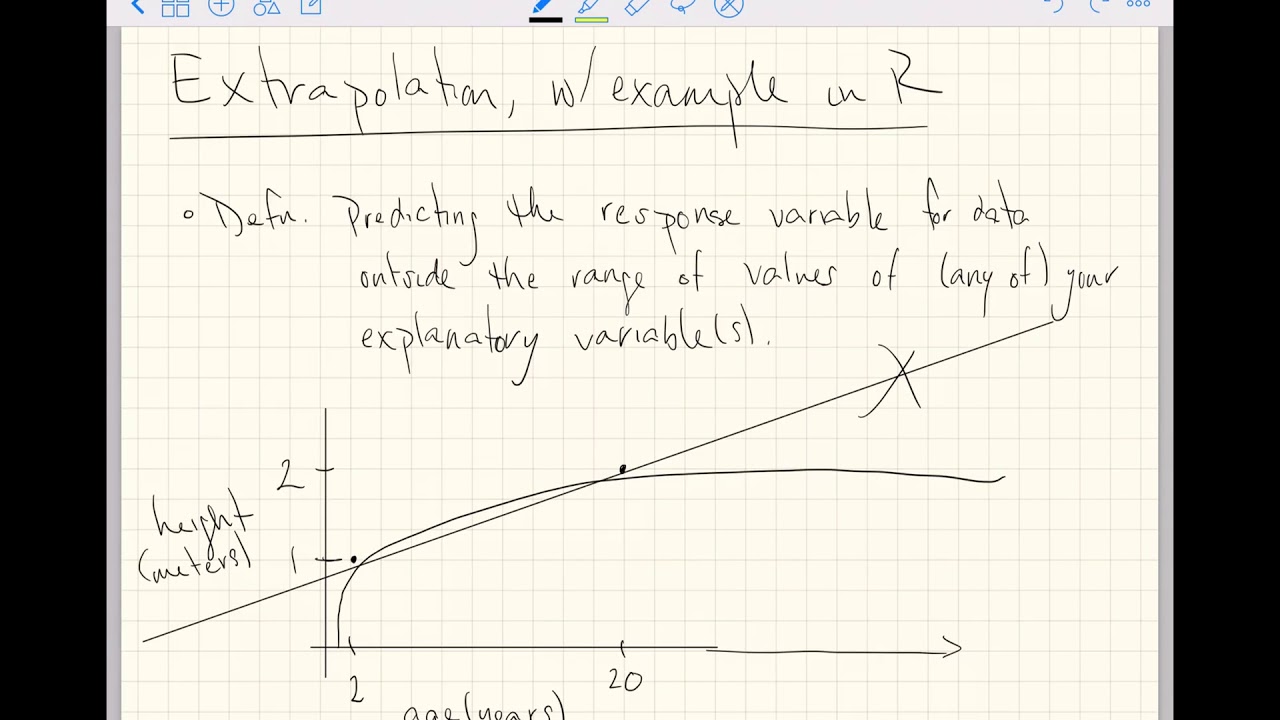 Extrapolation, w/ example in R
◦ Defn. Predicting the response variable for data
outside the range of values of (any of) your
explanatory variable(s).
2
height
(meters)
1
2
20
age (years)